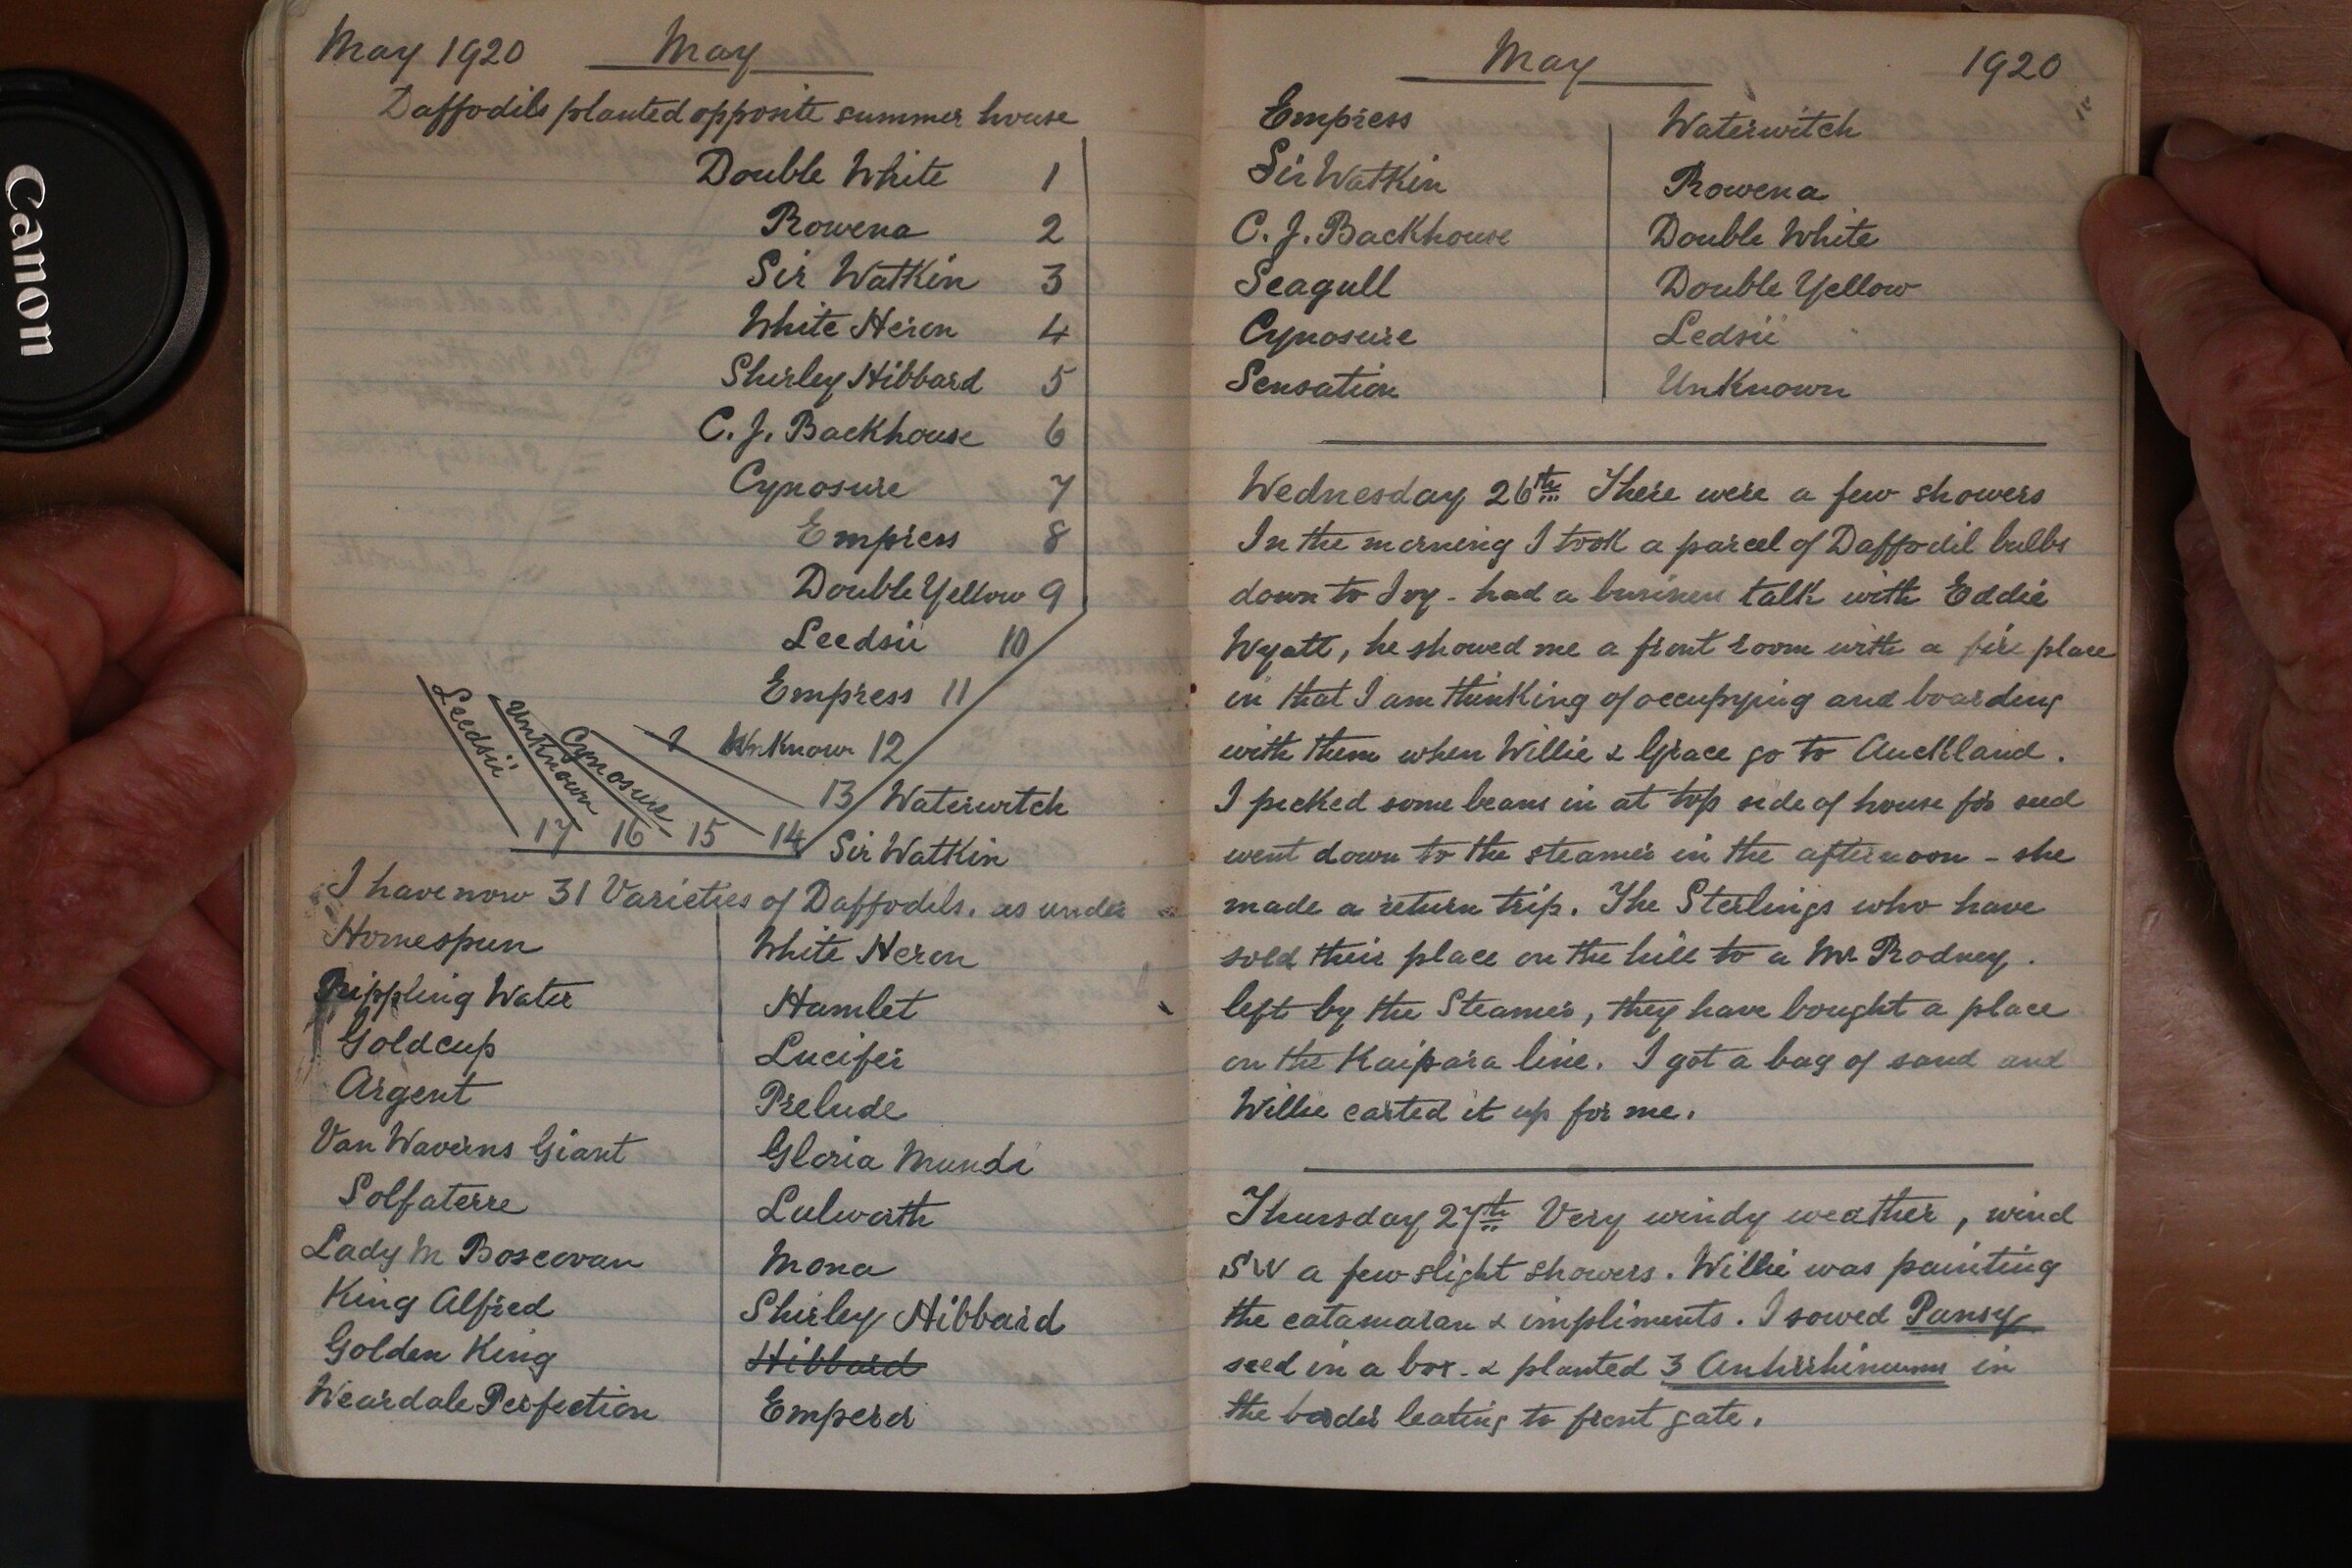 Canon
May 1920 May
Daffodils planted opposite summer house
Double White 1
Rowena 2
Sir Watkin 3
White Heron 4
Shirley Hibbard 5
C. J. Backhouse 6
Cynosure 7
Empress 8
Double Yellow 9
Leedsii 10
Empress 11
UnKnown 12
13 Waterwitch
14 Sir Watkin
15
Cynosure 16
UnKnown 17
Leedsii
I have now 31 Varieties of Daffodils. as under
Homespun
Rippling Water
Goldcup
Argent
Van Waverns Giant
Solfaterre
Lady M Boscovan
King Alfred
Golden King
Weardale Perfection
White Heron
Hamlet
Lucifer
Prelude
Gloria Mundi
Lulworth
Mona
Shirley Hibbard
Hibbard
Emperor
May 1920
Empress
Sir Watkin
C. J. Backhouse
Seagull
Cynosure
Sensation
Waterwitch
Rowena
Double White
Double Yellow
Ledsii
UnKnown
Wednesday 26th There were a few showers
In the morning I took a parcel of Daffodil bulbs
down to Ivy - had a business talk with Eddie
Wyatt, he showed me a front room with a fire place
in that I am thinking of occupying and boarding
with them when Willie & Grace go to Auckland.
I picked some beans in at top side of house for seed
went down to the steamer in the afternoon - she
made a return trip. The Sterlings who have
sold their place on the hill to a Mr Rodney.
left by the Steamer, they have bought a place
on the Kaipara line. I got a bag of sand and
Willie carted it up for me.
Thursday 27th Very windy weather, wind
SW a few slight showers. Willie was painting
the catamaran & impliments. I sowed Pansy
seed in a box. & planted 3 Antirrhinums in
the border leating to front gate.